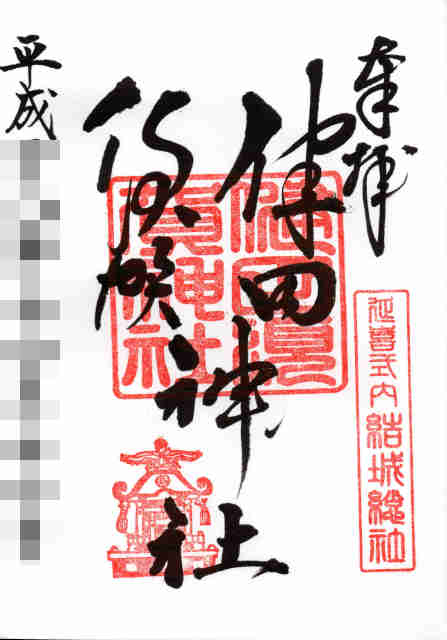 奉拝
延喜式内結城総社
健田
須賀
神社
健田須
賀神社
平成